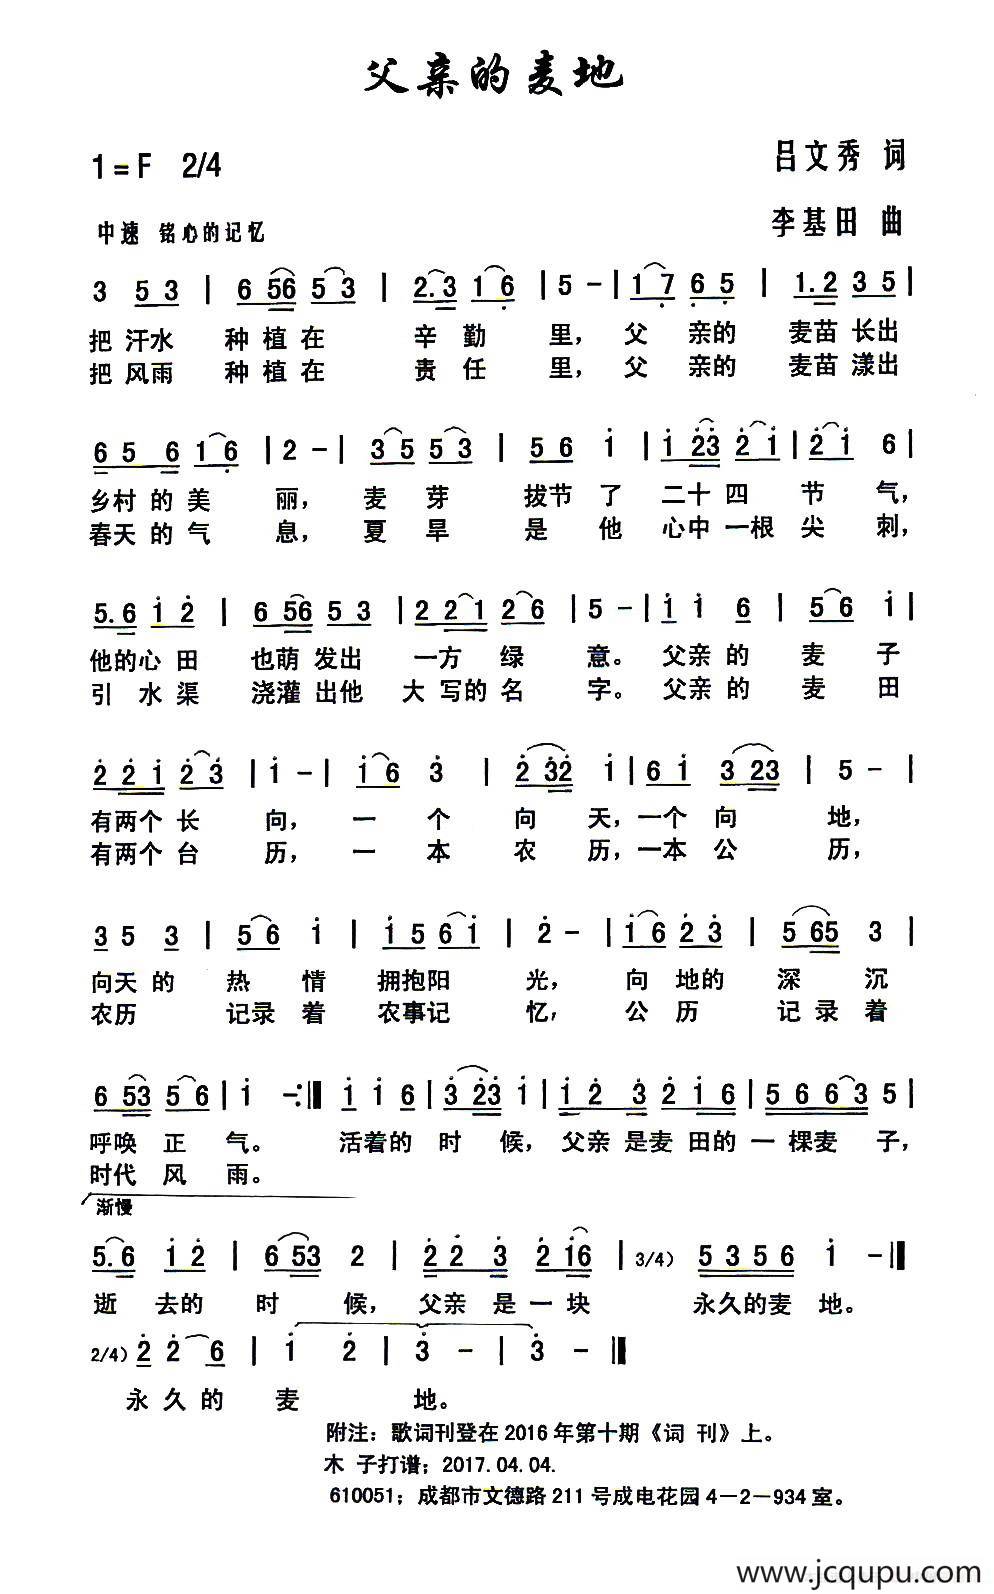 父亲的麦地
1=F 2/4
吕文秀 词
李基田 曲
中速 铭心的记忆
3 53 | 6 56 53 | 2.3 16 | 5 - | 17 65 | 1.2 35 |
把汗水 种植在 辛勤 里，父 亲的 麦苗长出
把风雨 种植在 责任 里，父 亲的 麦苗漾出
65 6 16 | 2 - | 35 53 | 56 i | i 23 2i | 2i 6 |
乡村的美 丽，麦芽 拔节了 二十四 节 气，
春天的气 息，夏旱 是 他 心中一根尖 刺，
5.6 i2 | 6 56 53 | 2 21 26 | 5 - | i i 6 | 56 i |
他的心田 也萌发出 一方 绿 意。 父亲的 麦 子
引 水渠 浇灌出他 大写的名 字。 父亲的 麦 田
2 2i 23 | i - | i6 3 | 2 32 i | 6i 3 23 | 5 - |
有两个长 向，一 个 向 天，一个向 地，
有两个台 历，一 本 农 历，一本公 历，
3 5 3 | 56 i | i5 6i | 2 - | i6 23 | 5 65 3 |
向天的 热 情 拥抱阳 光，向 地的 深 沉
农历 记录着 农事记 忆，公 历 记录着
6 53 56 | i -:|| i i 6 | 3 23 i | i2 3 2i6 | 5663 5 |
呼唤正 气。 活着的 时 候，父亲是麦田的一棵麦 子，
时代风 雨。
渐慢
5.6 i2 | 6 53 2 | 22 3 2 i6 | 3/4) 5356 i -||
逝 去的 时 候，父亲是一块 永久的麦 地。
2/4) 2 2 6 | i 2 | 3 - | 3 -||
永久的 麦 地。
附注：歌词刊登在2016年第十期《词 刊》上。
木 子打谱；2017.04.04.
610051；成都市文德路211号成电花园4－2－934室。
www.jcqupu.com